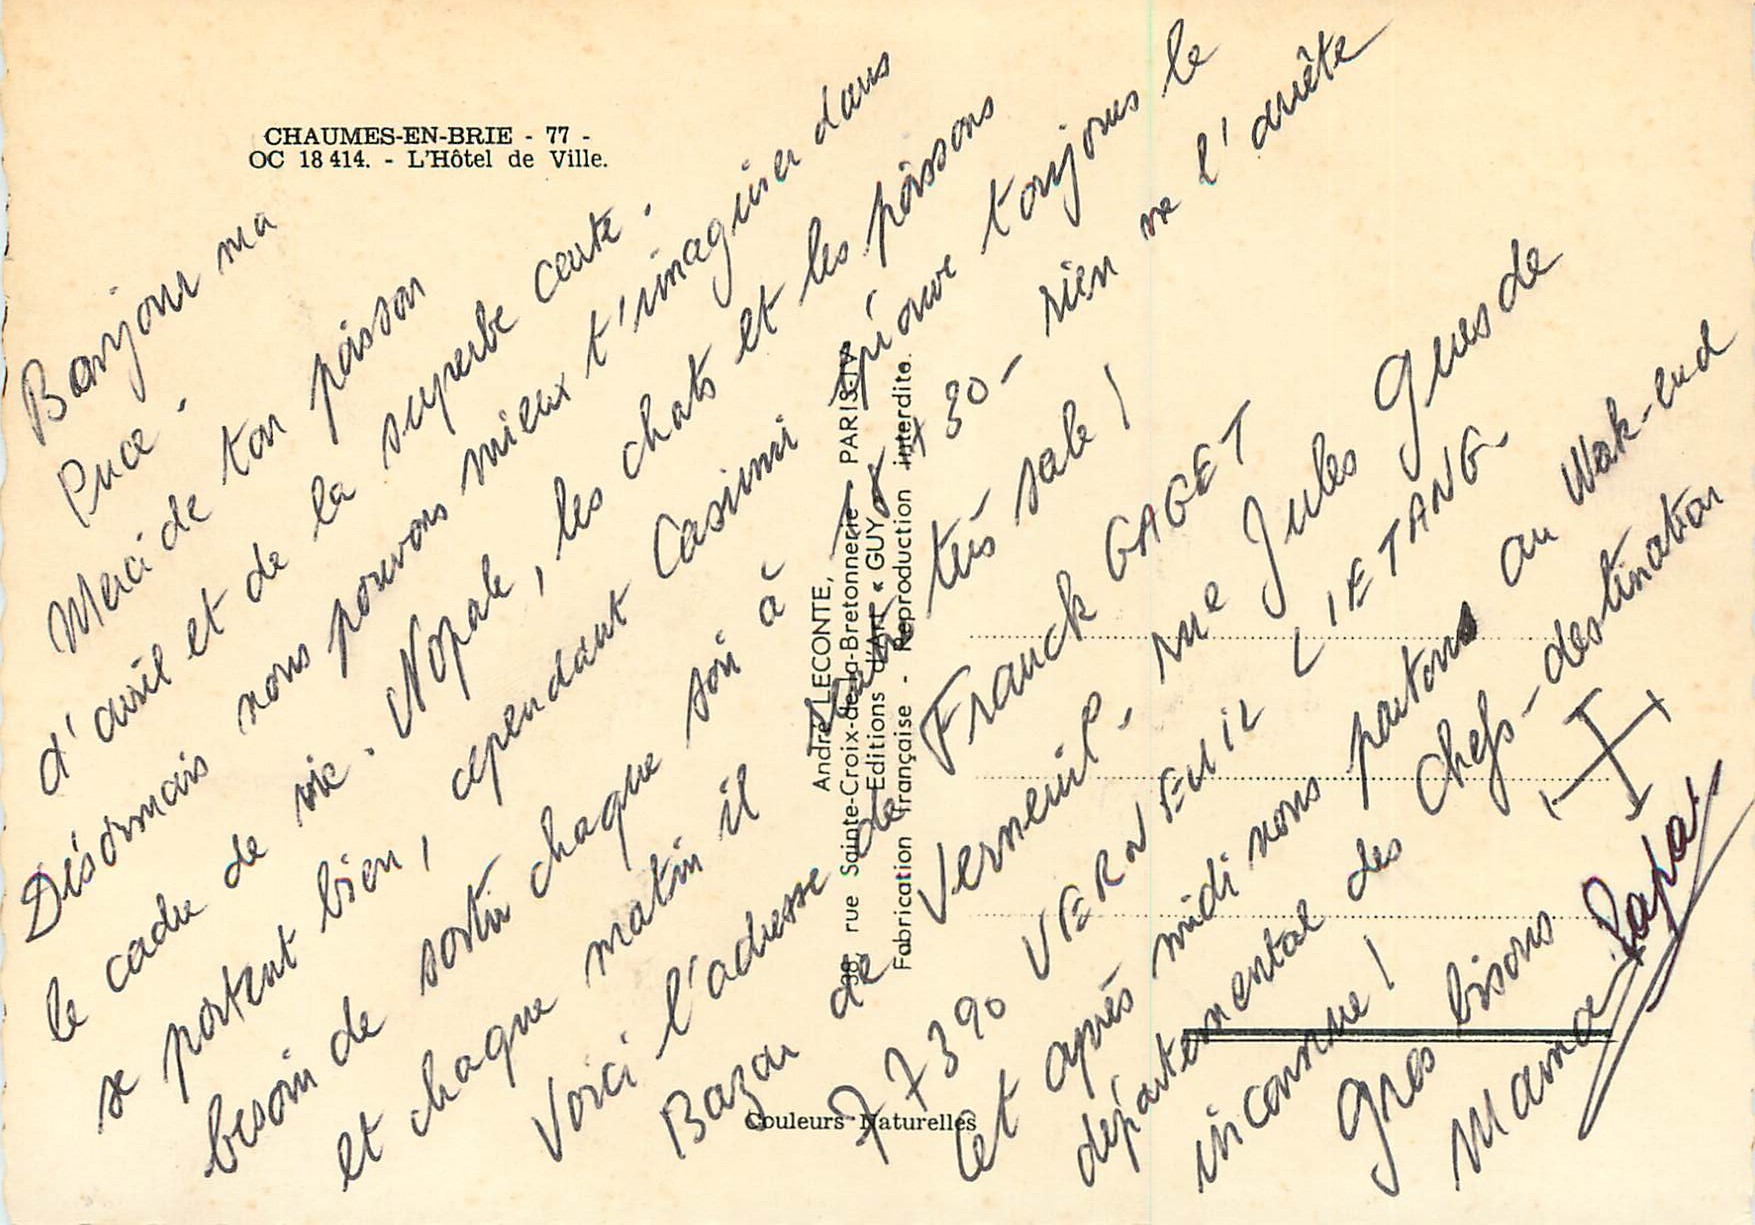 CHAUMES-EN-BRIE - 77 -
OC 18 414. - L'Hôtel de Ville.
Bonjour ma
Puce.
Merci de ton poisson
d'avril et de la superbe carte.
Désormais nous pouvons mieux t'imaginer dans
le cadre de vie. Nopale, les chats et les poissons
se portent bien, cependant Casimir éprouve toujours le
besoin de sortir chaque soir à 30 - rien ne l'arrête
et chaque matin il très sale !
Voici l'adresse de Franck GAGET
Bazar de Verneuil - rue Jules Guesde
77390 VERNEUIL L'ETANG -
Cet après midi nous partons au Week-end
départemental des Chefs - destination
inconnue !
Gros bisous
Maman Papa
André LECONTE,
38, rue Sainte-Croix-de-la-Bretonnerie - PARIS-IV
Editions d'Art « GUY »
Fabrication française - Reproduction interdite.
Couleurs Naturelles